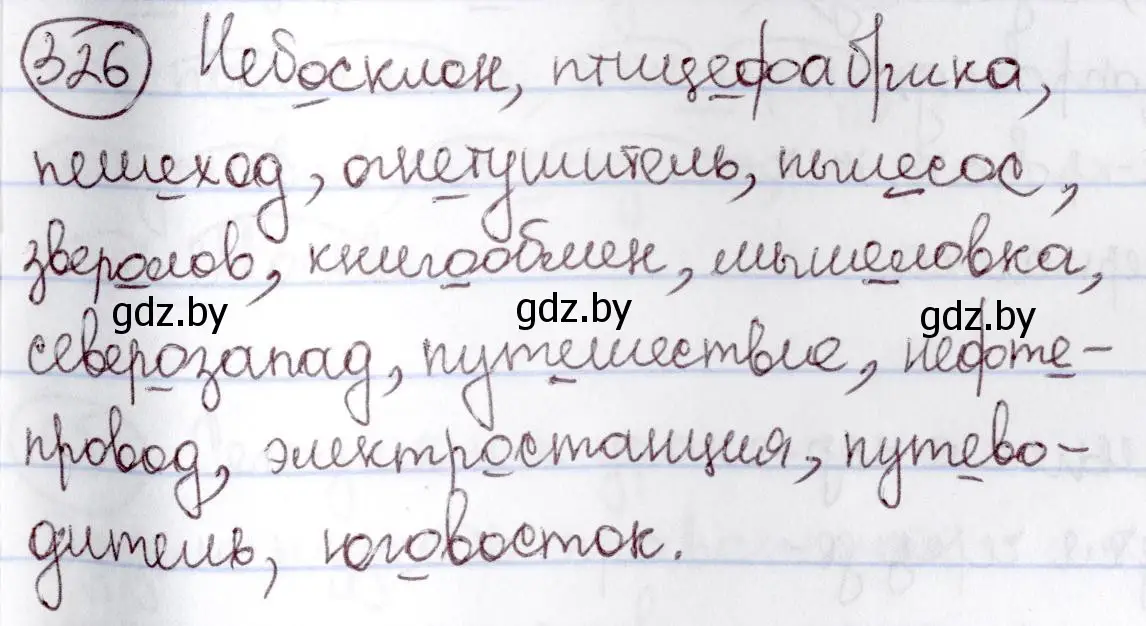 326 Небосклон, птицефабрика,
пешеход, огнетушитель, пылесос,
зверолов, книгообмен, мышеловка,
gdz.by gdz.by gdz.by
северозапад, путешествие, нефте-
провод, электростанция, путево-
дитель, юговосток.